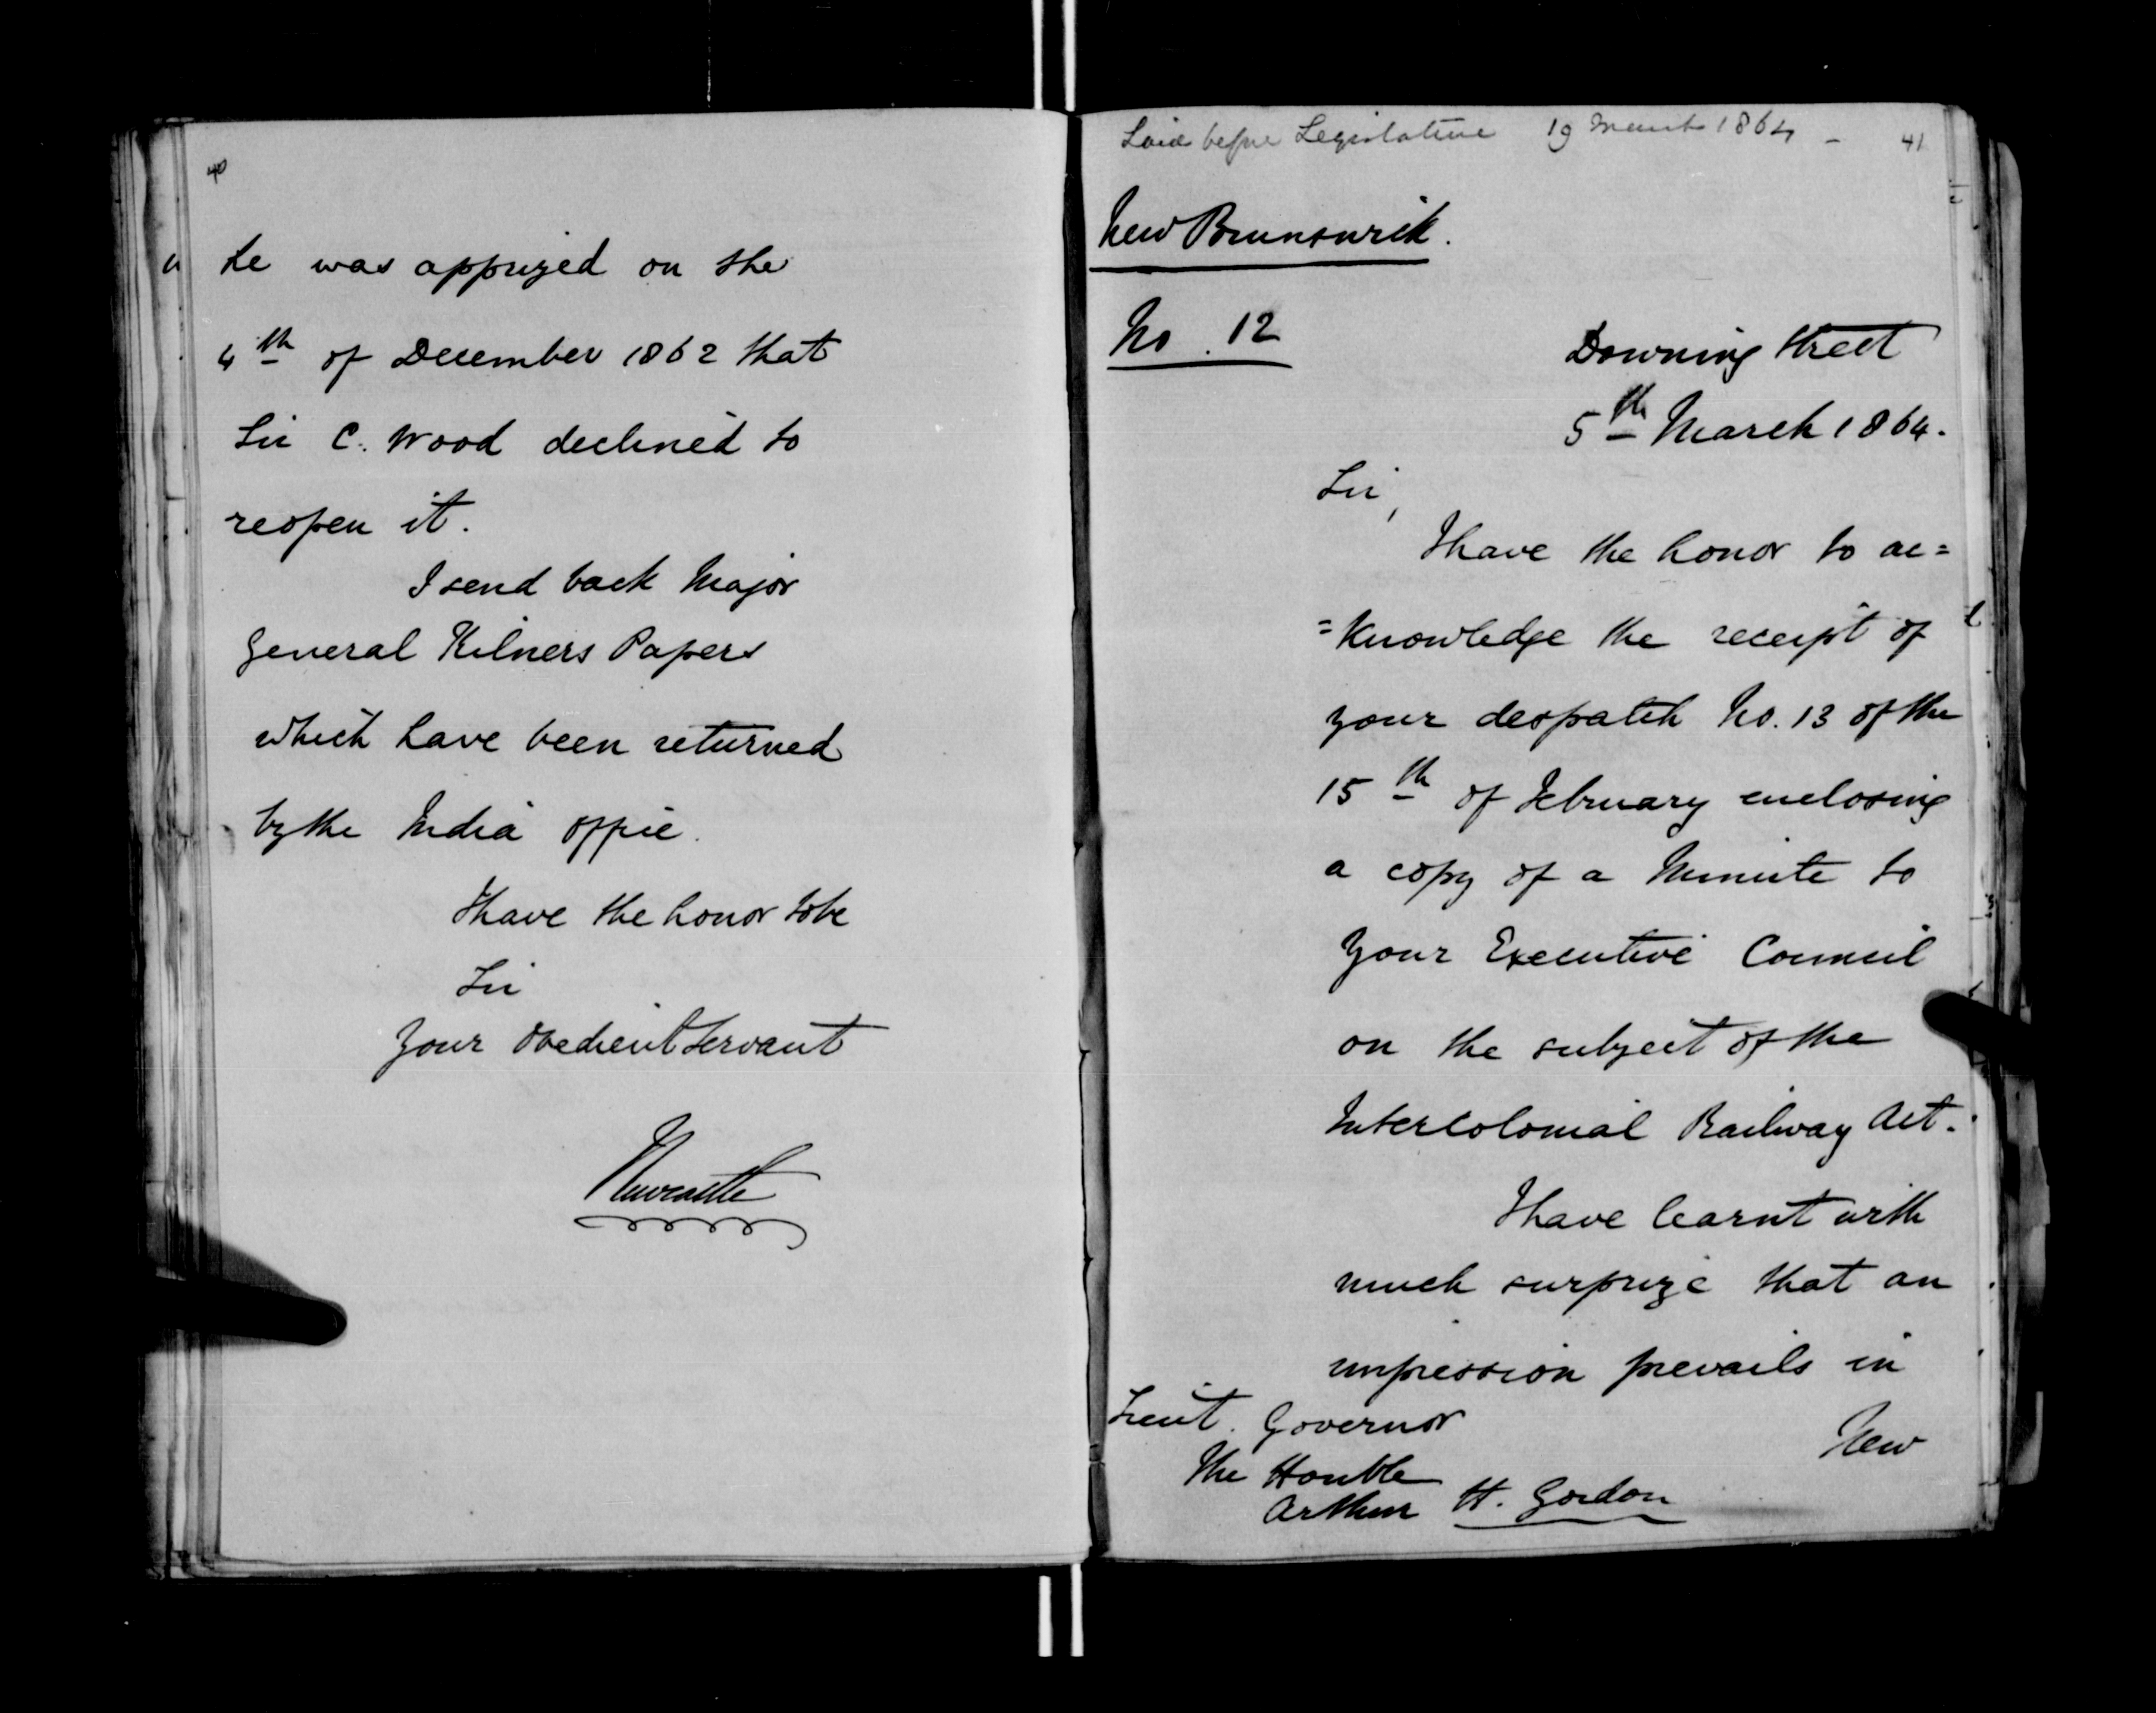 40
he was apprized on the
4th of December 1862 that
Sir C. Wood declined to
reopen it.
I send back Major
General Kilners Papers
which have been returned
by the India office.
I have the honor to be
Sir
Your Obedient Servant
Newcastle
Laid before Legislature 19 March 1864 - 41
New Brunswick.
No. 12
Downing Street
5th March 1864.
Sir,
I have the honor to ac=
=knowledge the receipt of
your despatch No. 13 of the
15th of February enclosing
a copy of a Minute to
Your Executive Council
on the subject of the
Intercolonial Railway Act.
I have learnt with
much surprize that an
impression prevails in
New
Lieut. Governor
The Honble
Arthur H. Gordon